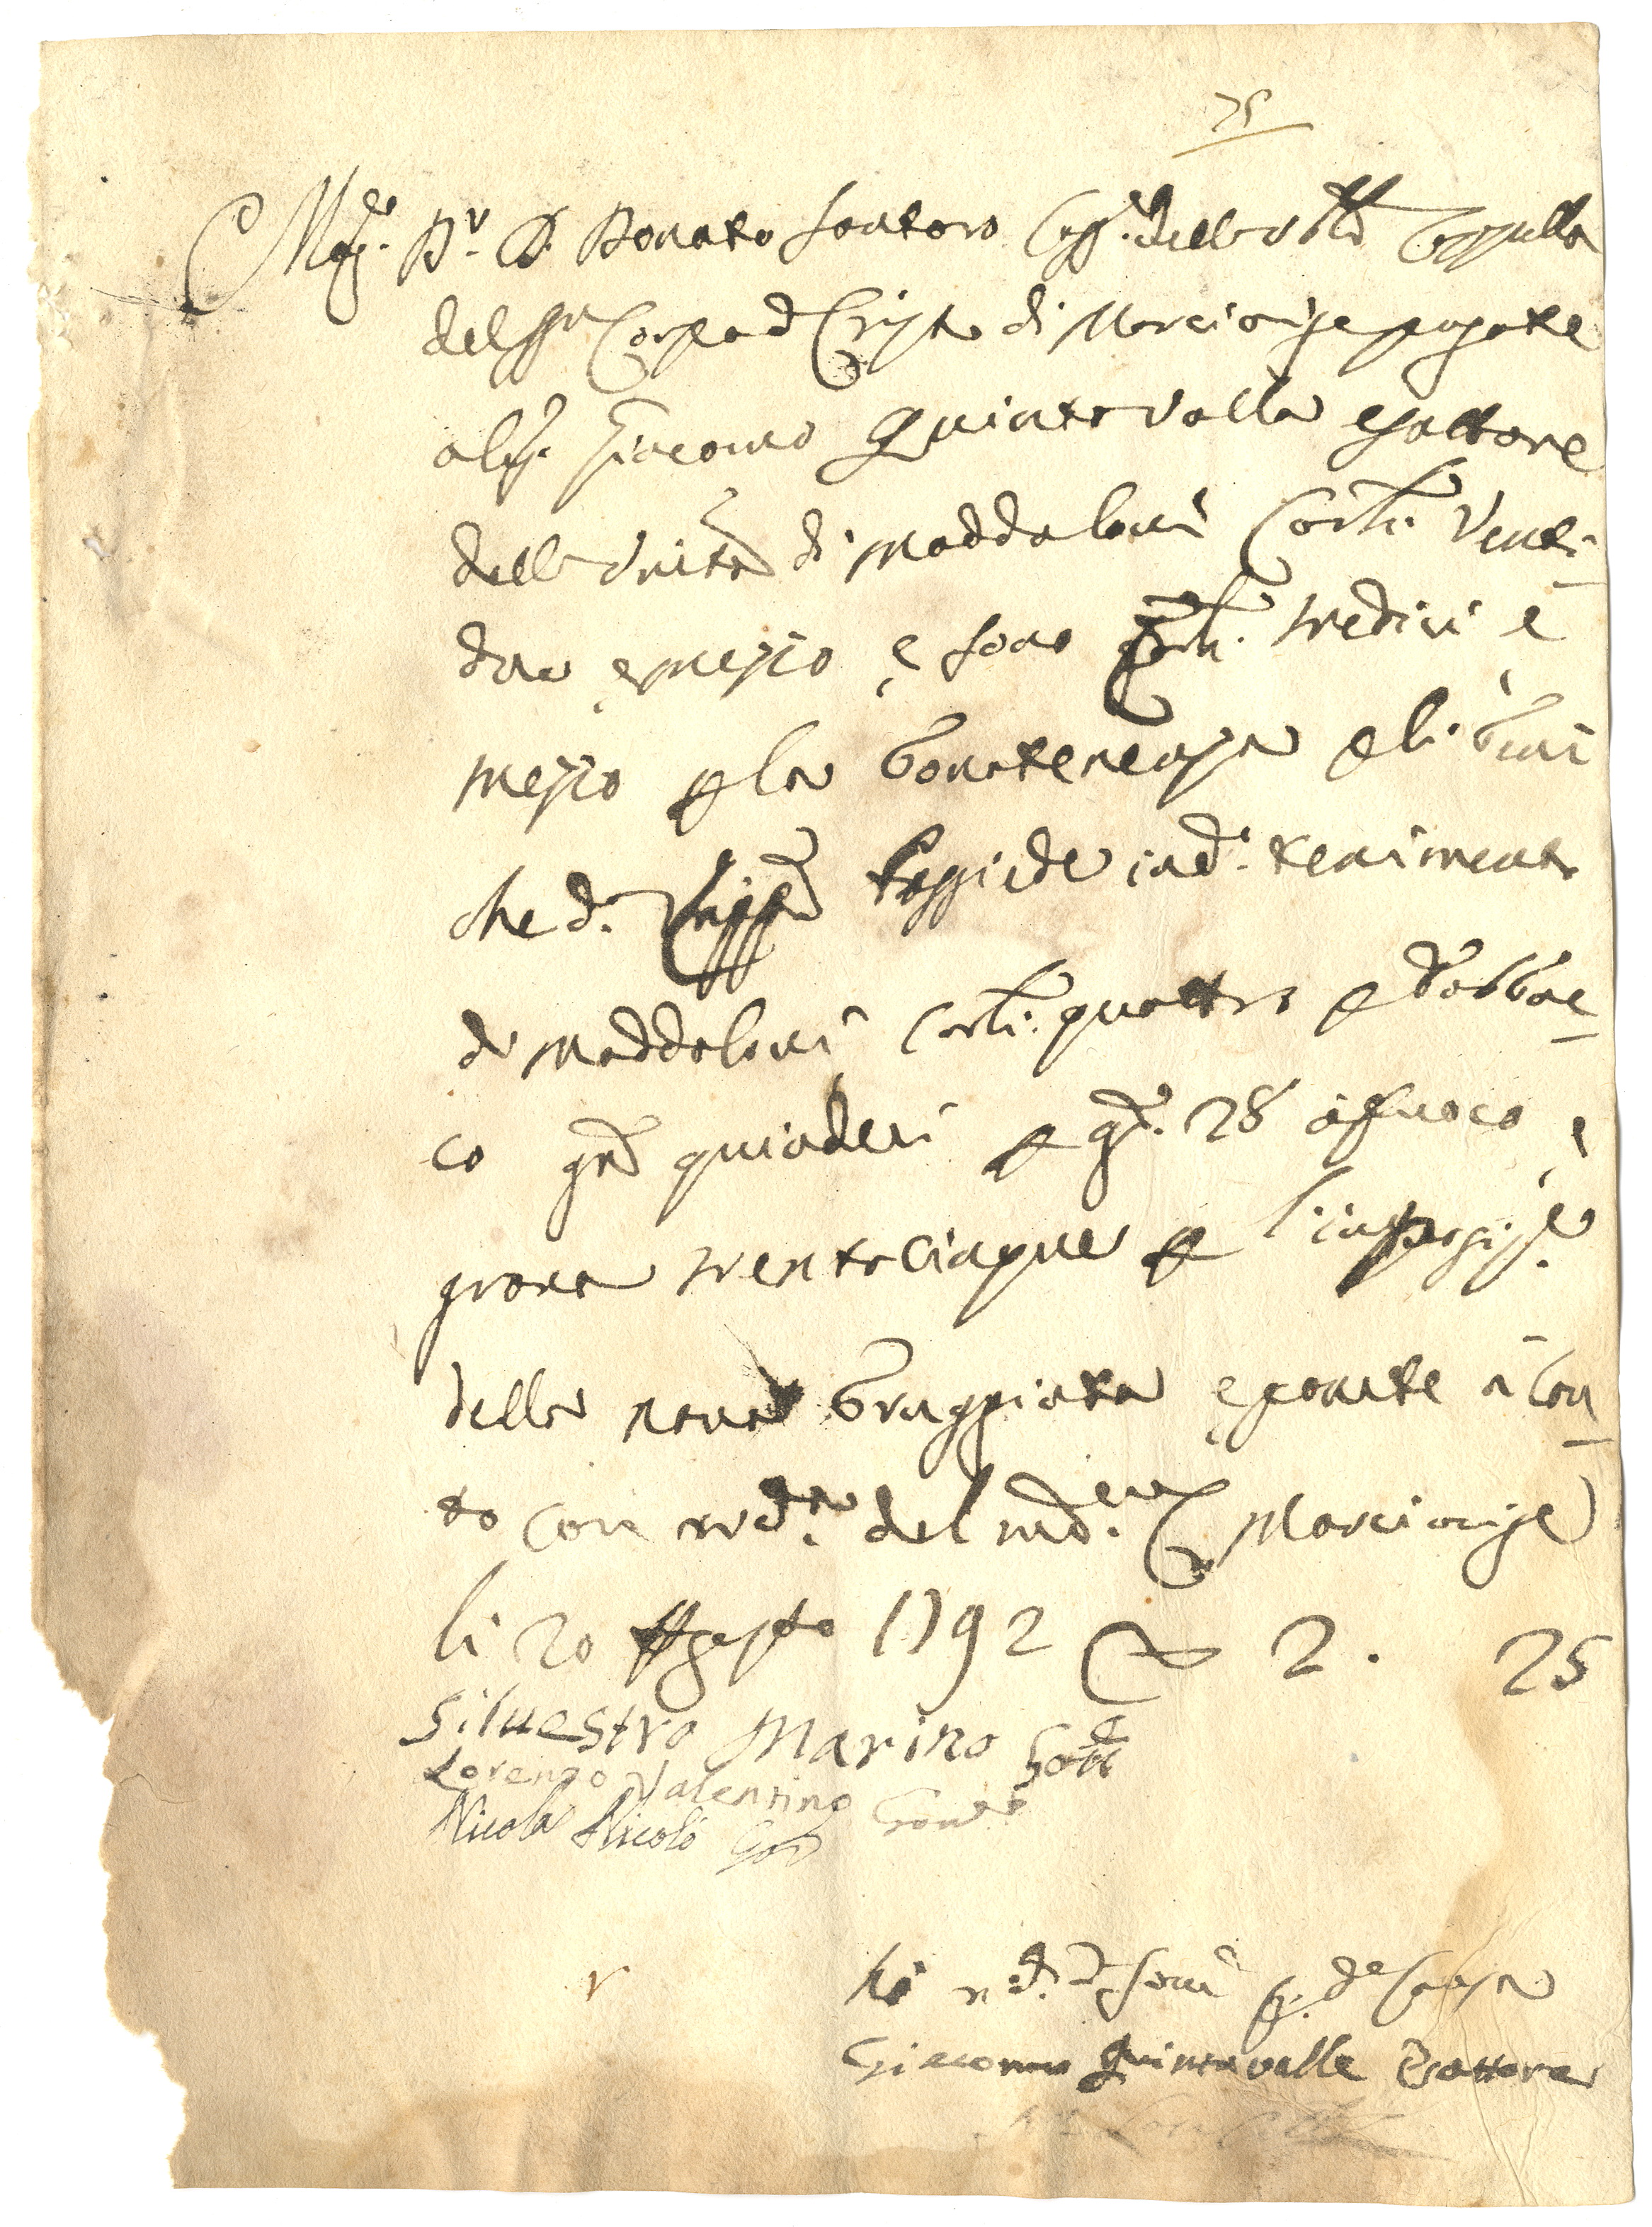 25
Mag.co D.r D. Donato Santoro Cass.e della Ven.le Cappella
del SS.mo Corpo d Cristo di Marcianise pagate
al S.r Giacomo Quintavalle esattore
dell Unita di Maddaloni Carli. Venti-
due e mezzo e sono Carli. tredici e
mezzo p la bonatenenza p li beni
che d.a possiede in d.o teniment
di Maddaloni Carli. quattro p tobbac-
co gra quindeci p gr. 28 a fuoco e
grana trentacinque p l'imposiz.e
della nova bruggiata e ponite a con
to con rec.ta del med.o Marcianise
li 20 Agosto 1792 2. 25
Siluestro Marino Gov.re
Lorenzo Valentino Gov.re
Nicola Nicolò Gov
Ho r.ti d.e Somi p. d.a Causa
Giacomo Quintavalle Esattore